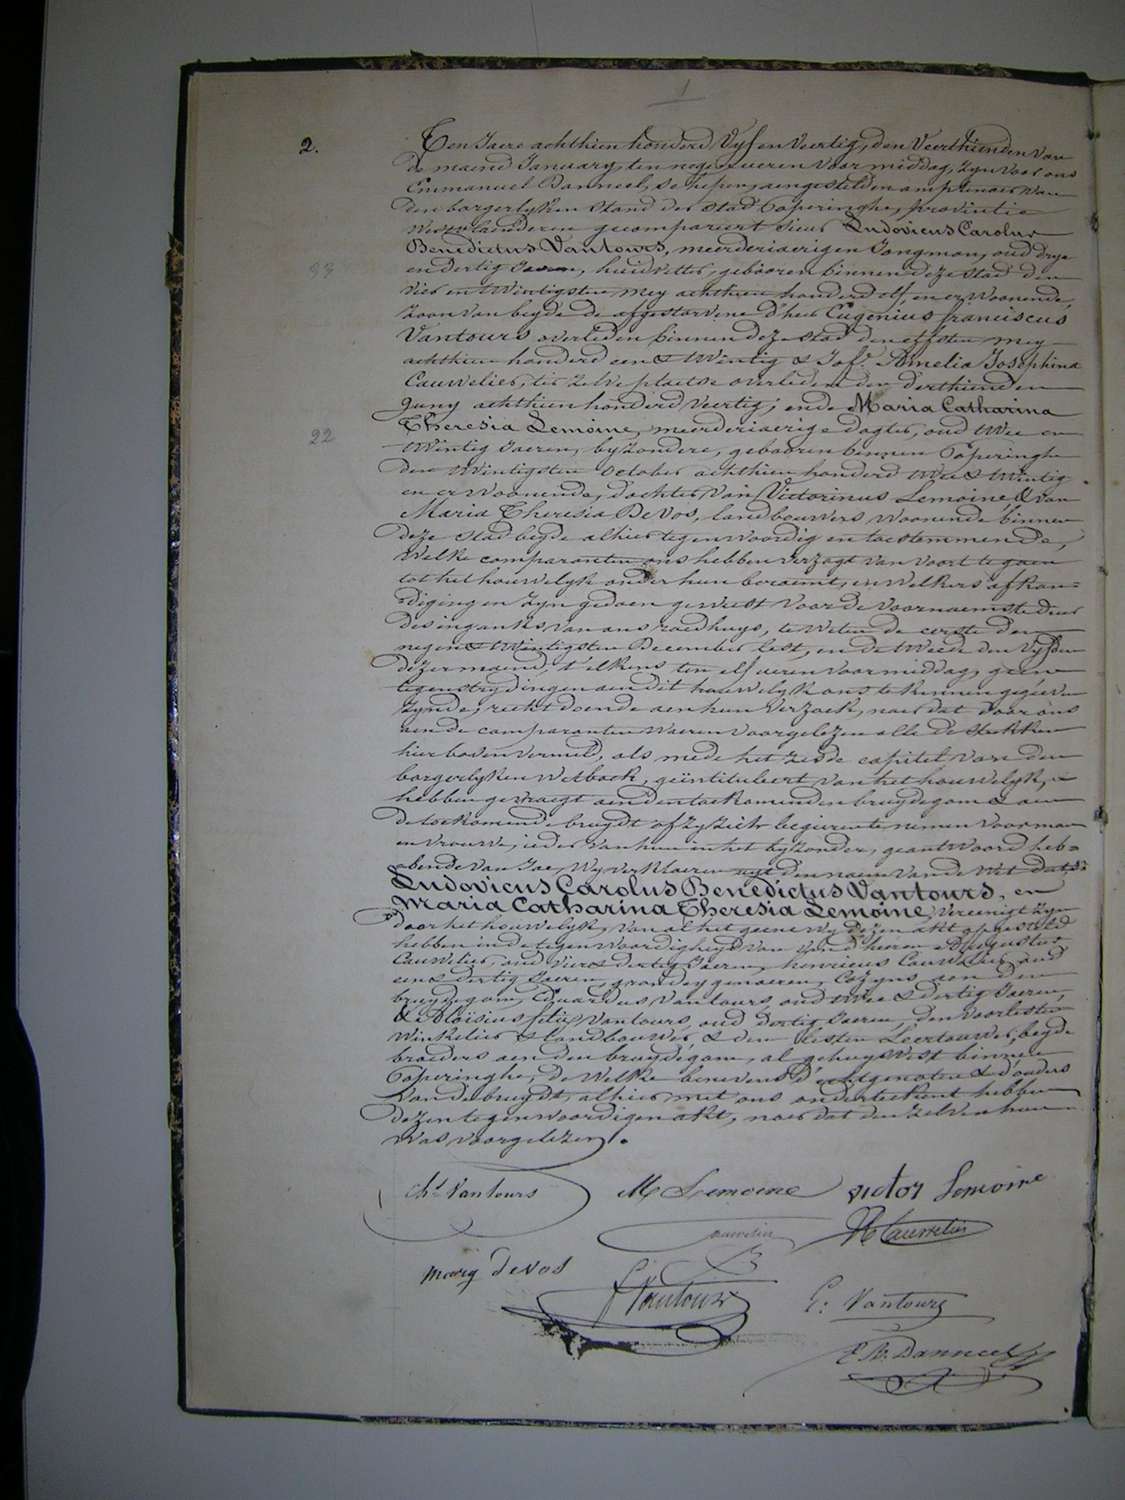 1
2.
Ten Jaere achthien honderd Vyf en Veertig, den Veerthienden van
de maend January, ten negen ueren voor middag, zyn voor ons
Emmanuel Danneel, Schepen, aengestelden amptenaer van
den borgerlyken Stand der Stad Poperinghe, provintie
Westvlaenderen gecompareert Sieur Ludovicus Carolus
Benedictus Vantours, meerderjaerigen Jongman, oud drye
33
en dertig Jaeren, huidvetter, gebooren binnen deze stad den
vier en twintigsten mey achthien honderd elf, en er woonende,
zoon van beyde de afgestorvene d'heer Eugenius franciscus
Vantours overleden binnen deze stad den elfsten mey
achthien honderd een & twintig & Jofr. Amelia Josephina
Cauwelier, ter zelve plaetse overleden den derthienden
Juny achthien honderd veertig; ende Maria Catharina
Theresia Lemoine, meerderjaerige dogter, oud twee en
22
twintig Jaeren, byzondere, gebooren binnen Poperinghe
den twintigsten October achthien honderd twee & twintig
en er woonende, dochter van Victorinus Lemoine & van
Maria Theresia DeVos, landbouwers woonende binnen
deze stad beyde alhier tegenwoordig en toestemmende,
Welke comparanten ons hebben verzogt van voort te gaen
tot het houwelyk onder hun beraemt, en welkers afkon-
diging en zyn gedaen geweest voor de voornaemste deur
des ingangs van ons raedhuys, te weten de eerste den
negen & twintigsten December lest, en de tweede den vyfden
dezer maend, t'elkens ten elf ueren voormiddag, geene
tegenstrydingen aen dit houwelyk ons te kennen gegeven
zynde; recht doende aen hun verzoek, naer dat door ons
aen de comparanten waeren voorgelezen alle de stukken
hier boven vermeld, als mede het zesde capitel van den
borgerlyken Wetboek, geïntituleert van het houwelyk,
hebben gevraegt aen den toekomenden bruydegom & aen
de toekomende bruydt of zy zich begeiren te nemen voor man
en vrouwe; ieder van hun in het byzonder, geantwoord heb-
bende van Jae, Wy verklaeren uyt den naem van de Wet dat
Ludovicus Carolus Benedictus Vantours, en
Maria Catharina Theresia Lemoine, vereenigt zyn
door het houwelyk, van al het geene wy dezen akt opgesteld
hebben in de tegenwoordigheyd van d'heeren Augustus
Cauwelier, oud vier & dertig Jaeren, henricus Cauwelier oud
een & dertig Jaeren, cozyns aen den
bruydegom, Eduardus Vantours, oud twee & dertig Jaeren,
& Aloïsius felix Vantours, oud dertig Jaeren, den voorlesten
Winkelier & landbouwer, & den lesten Leertouwer, beyde
broeders aen den bruydegom, al gehuysvest binnen
Poperinghe, de welke benevens d'echtgenoten & d'ouders
van de bruydt, alhier met ons onderteekent hebben
dezen tegenwoordigen akt, naer dat den zelven hun
was voorgelezen.
Chs Vantours M Lemoine victor Lemoine
Cauwelier H Cauwelier
marig devos
f Vantours E: Vantours
E B. Danneel